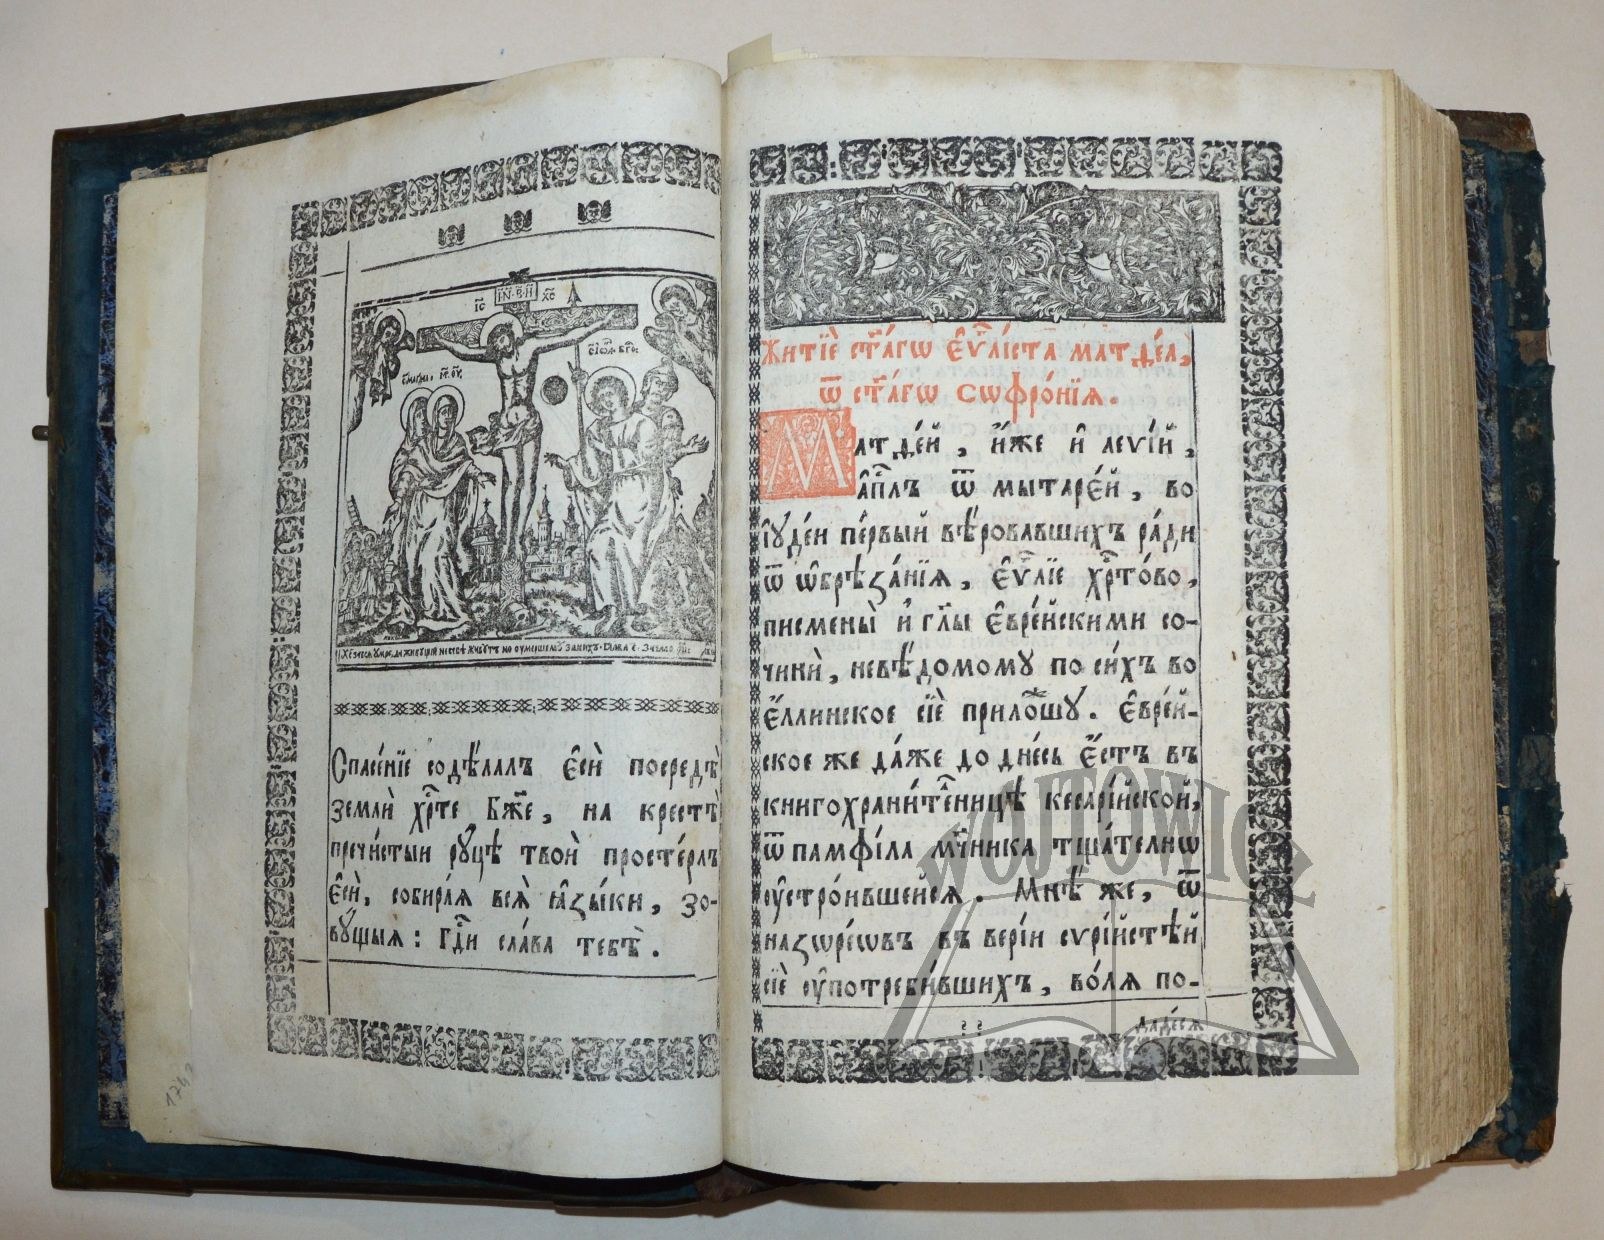 І҃Н҃В҃І
І҃С Х҃С
Спасе́нїе содѣ́лалъ є҆сѝ посредѣ̀
землѝ хрⷭ҇те бж҃е, на крестѣ̀
пречи́стыи ру́цѣ твоѝ просте́рлъ
є҆сѝ, собира́ѧ всѧ̀ ꙗ҆зы́ки, зо-
ву́щыѧ: гдⷭ҇и сла́ва тебѣ̀.
Житїѐ ст҃а́гѡ є҆ѵⷢ҇лі́ста матѳе́а,
ѿ ст҃а́гѡ сѡфро́нїѧ.
Матѳе́й, и҆́же и҆ леѵі́й,
а҆пⷭ҇лъ ѿ мытаре́й, во
і҆уде́и пе́рвый вѣ́ровавшихъ ра́ди
ѿ ѡ҆брѣ́занїѧ, є҆ѵⷢ҇лїе хрⷭ҇то́во,
писмены̀ и҆ гл҃ы є҆вре́йскими со-
чинѝ, невѣ́домому по си́хъ во
є҆́ллинское сїѐ прило́шу. Є҆вре́й-
ское же да́же до дне́сь є҆́стъ въ
книгохрани́телницѣ кесарі́йской,
ѿ памфі́ла мч҃ника тщателнѡ
ѹ҆стро́ившейсѧ. Мнѣ́ же, ѿ
назѡре́ѡвъ въ вері́и сѵрі́йстѣй
сїѐ ѹ҆потреби́вшихъ, во́лѧ по-
даде́сѧ
1742
WOJTOWICZ